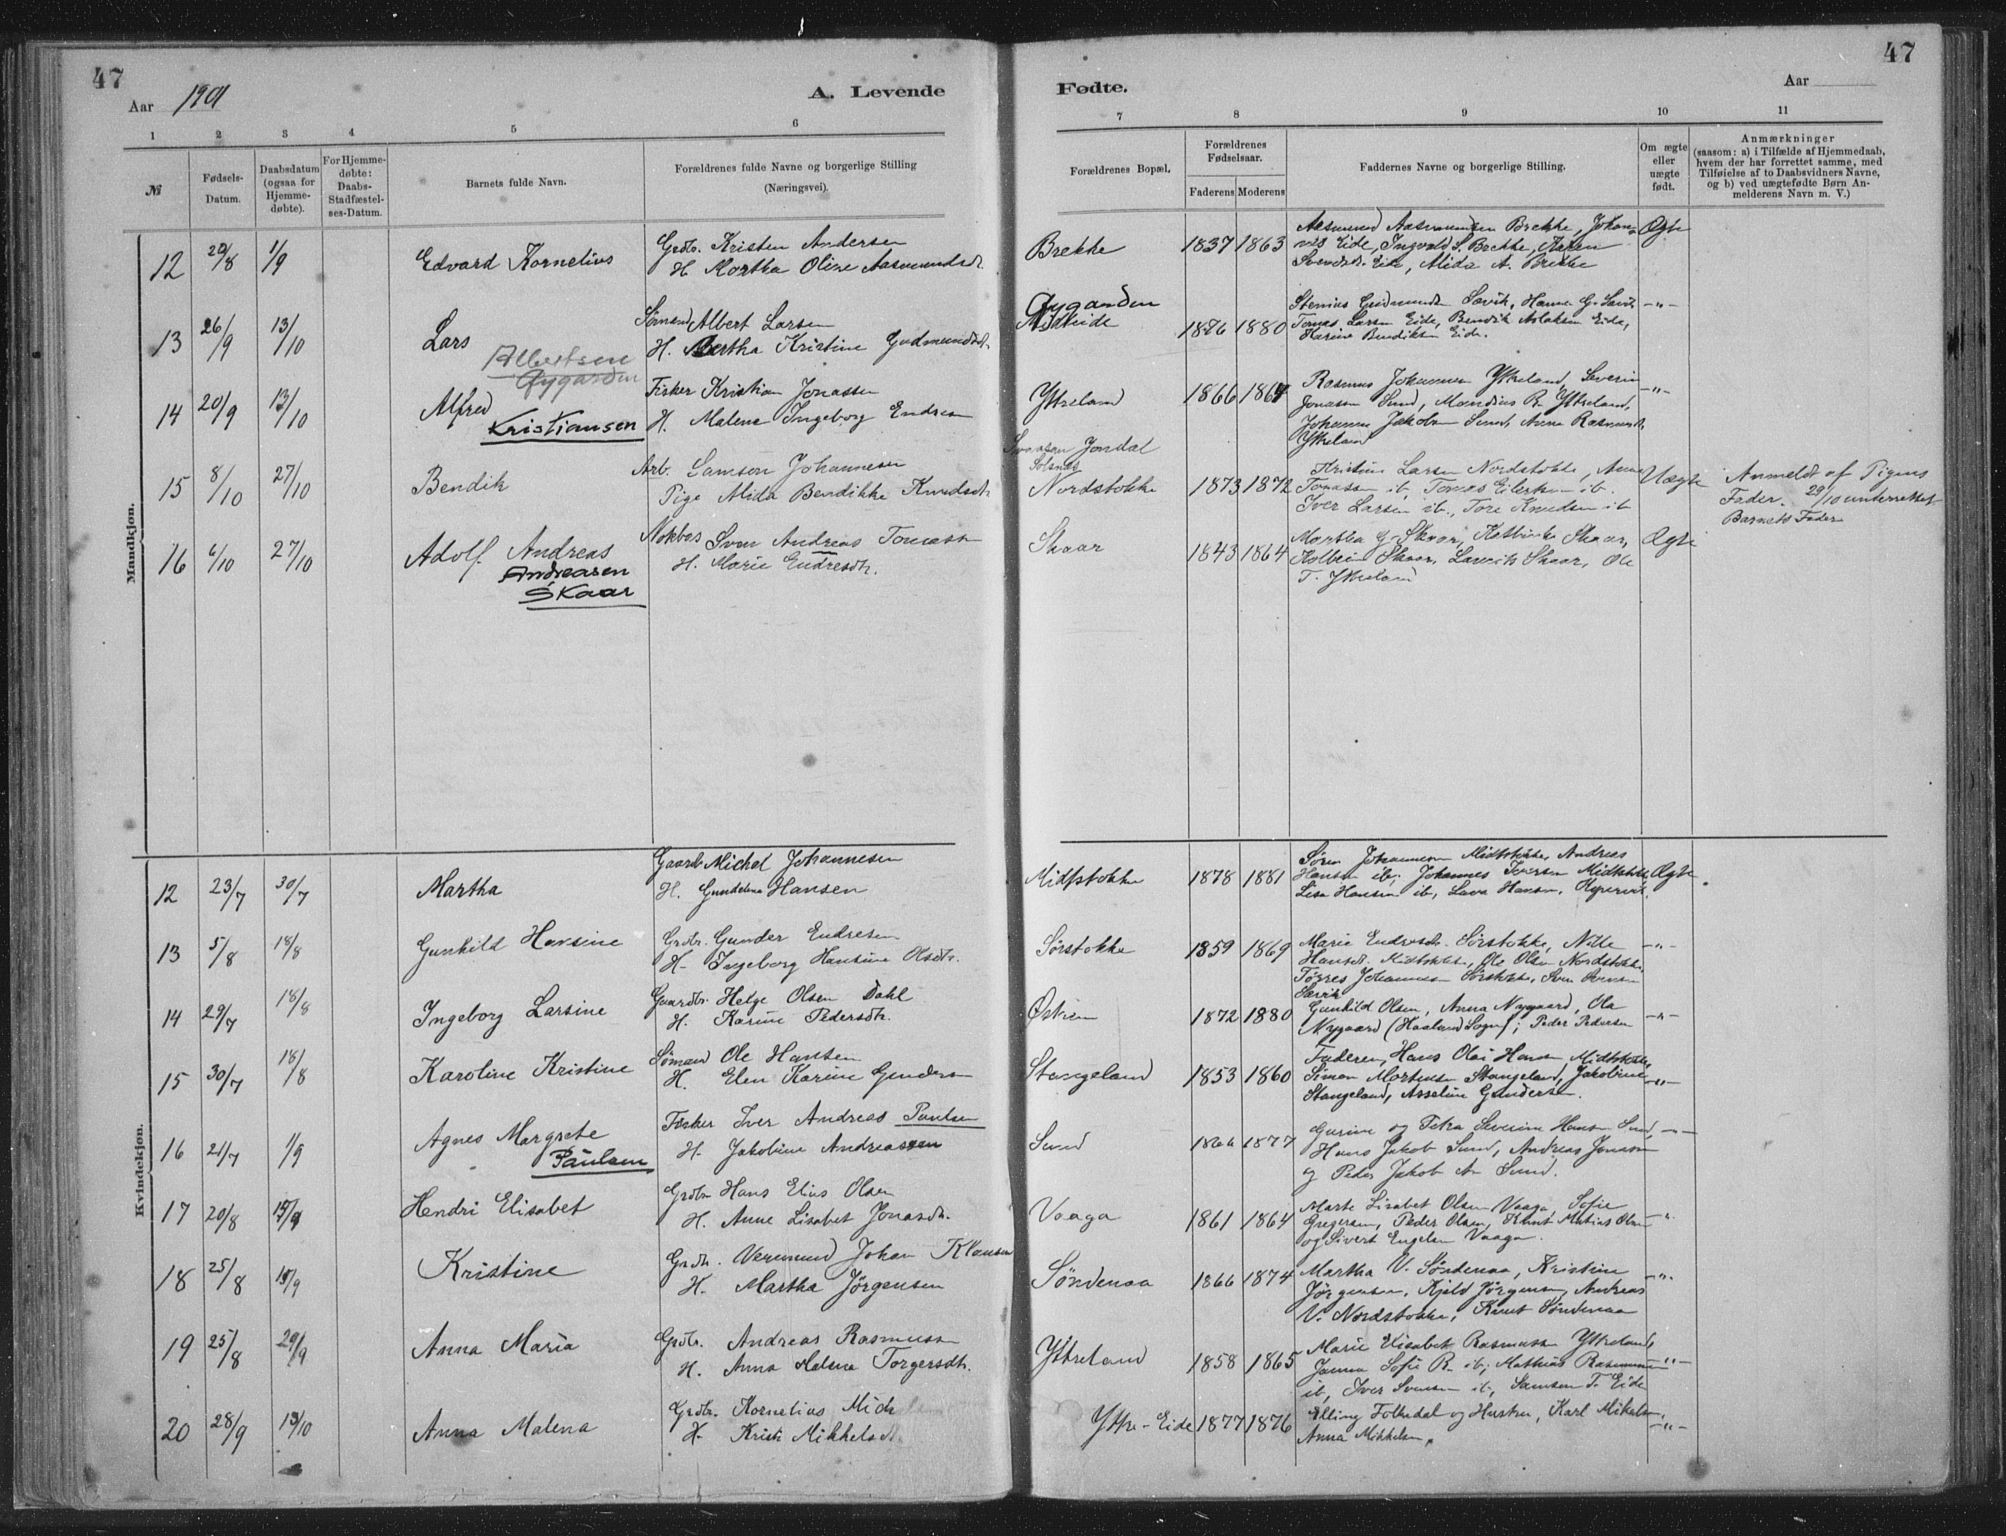 47
Aar 1901
A. Levende
1 2 3 4 5 6
№
Fødsels-Datum.
Daabsdatum (ogsaa for Hjemme-døbte).
For Hjemme-døbte: Daabs-Stadfæstel-ses-Datum.
Barnets fulde Navn.
Forældrenes fulde Navne og borgerlige Stilling
(Næringsvei).
Mandkjøn.
12 29/8 1/9 Edvard Kornelius
Grdbr. Kristen Andersen
H. Martha Oline Aasmundsdt.
13 26/9 13/10 Lars
Albertsen
Øygarden
Sømand Albert Larsen
H. Martha Kristine Gudmundsdt.
14 20/9 13/10 Alfred
Kristiansen
Fisker Kristian Jonassen
H. Malene Ingeborg Endresen
15 8/10 27/10 Bendik
Arb. Samson Johannesen
Pige Alida Bendikke Knudsdt.
16 6/10 27/10 Adolf Andreas
Andreasen
Skaar
Notbas Sven Andreas Tomassen
H. Marie Endresdtr.
Kvindekjøn.
12 23/7 30/7 Martha
Gaardb. Michal Johannesen
H. Gundelena Hansen
13 5/8 18/8 Gunhild Hansine
Grdbr. Gunder Endresen
H. Ingeborg Hansine Olsdtr.
14 29/7 18/8 Ingeborg Larsine
Gaardbr. Helge Olsen Dahl
H. Karine Pedersdtr.
15 30/7 18/8 Karoline Kristine
Sømand Ole Hansen
H. Elen Karine Gundersen
16 21/7 1/9 Agnes Margrete
Paulsen
Fisker Iver Andreas Paulsen
H. Jakobine Andreassen
17 20/8 15/9 Hendri Elisabet
Grdbr. Hans Elias Olsen
H. Anne Lisabet Jonasdtr.
18 25/8 15/9 Kristine
Grdbr. Veremund Johan Klausen
H. Martha Jørgensen
19 25/8 29/9 Anna Maria
Grdbr. Andreas Rasmussen
H. Anna Malena Torgersdtr.
20 28/9 13/10 Anna Malena
Grdbr. Kornelius Mich
H. Kristi Mikkelsdt.
47
Fødte.
Aar
7 8 9 10 11
Forældrenes Bopæl.
Forældrenes Fødselsaar.
Faderens Moderens
Faddernes Navne og borgerlige Stilling.
Om ægte eller uægte født.
Anmærkninger
(saasom: a) i Tilfælde af Hjemmedaab,
hvem der har forrettet samme, med
Tilføielse af to Daabsvidners Navne,
og b) ved uægtefødte Børn An-
melderens Navn m. V.)
Brekke 1837 1863
Aasmund Aasmundsen Brekke, Johan-
nes Eide, Ingvald S. Brekke, Karen
Svendsdt. Eide, Alida A. Brekke
Ægte
Øygarden
1876 1880
Stenius Gudmunds Sævik, Hanne G. Sævik
Tomas Larsen Eide, Bendik Aslaksen Eide,
Karine Bendiksen Eide.
-"-
Ytreland 1866 1864
Rasmus Johannesen Ytreland, Severin
Jonassen Sund, Mandius R. Ytreland,
Johannes Jakobsen Sund, Anna Rasmusdt.
Ytreland
-"-
Jondal
Solsnæs
Nordstokke 1873 1872
Kristine Larsen Nordstokke, Anna
Tomassen ib, Tomas Eilertsen ib.
Iver Larsen ib., Tore Knudsen ib
Uægte
Anmeldt af Pigens
Fader. 29/10 underrettet
Barnets Fader
Skaar 1843 1864
Martha G. Skaar, Katrine Skaar,
Kolbein Skaar, Laurits Skaar, Ole
T. Ytreland
Ægte
Midtstokke 1878 1881
Søren Johannesen Midtstokke, Andreas
Hansen ib, Johannes Iversen Midtstokke
Lisa Hansen ib, Lava Hansen,
Ægte.
Sørstokke 1859 1869
Marie Endresdt. Sørstokke, Nille
Hansdt. Midtstokke, Ole Olsen Nordstokke,
Tørres Johannesen Sørstokke, Sven Svensen
Sævik
-"-
Østrem 1872 1880
Gunhild Olsen, Anna Nygaard, Ole
Nygaard (Haaland Sogn); Peder Pedersen
-"-
Stangeland 1853 1860
Faderen, Hans Olai Hansen Midtstokke,
Simon Mortensen Stangeland, Jakobine
Stangeland, Asseline Gundersen.
-"-
Sund 1866 1877
Gurine og Petra Severine Hansen Sund,
Hans Jakob Sund, Andreas Jonassen
og Peder Jakob An Sund.
-"-
Vaaga 1861 1864
Marte Lisabet Olsen Vaaga, Sofie
Gregersen, Peder Olsen, Knut Matias Olsen
og Sivert Engelsen Vaaga.
-"-
Søndenaa 1866 1874
Martha V. Søndenaa, Kristine
Jørgensen, Kjeld Jørgensen, Andreas
V. Nordstokke, Knut Søndenaa
-"-
Ytreland 1858 1865
Marie Elisabet Rasmussen Ytreland,
Janna Sofie R. ib, Mathias Rasmussen
ib, Iver Svensen ib, Samson T. Eide
-"-
Ytre-Eide 1877 1876
Elling Folkedal og Hustru, Karl Mikalsen,
Anna Mikkelsen.
-"-